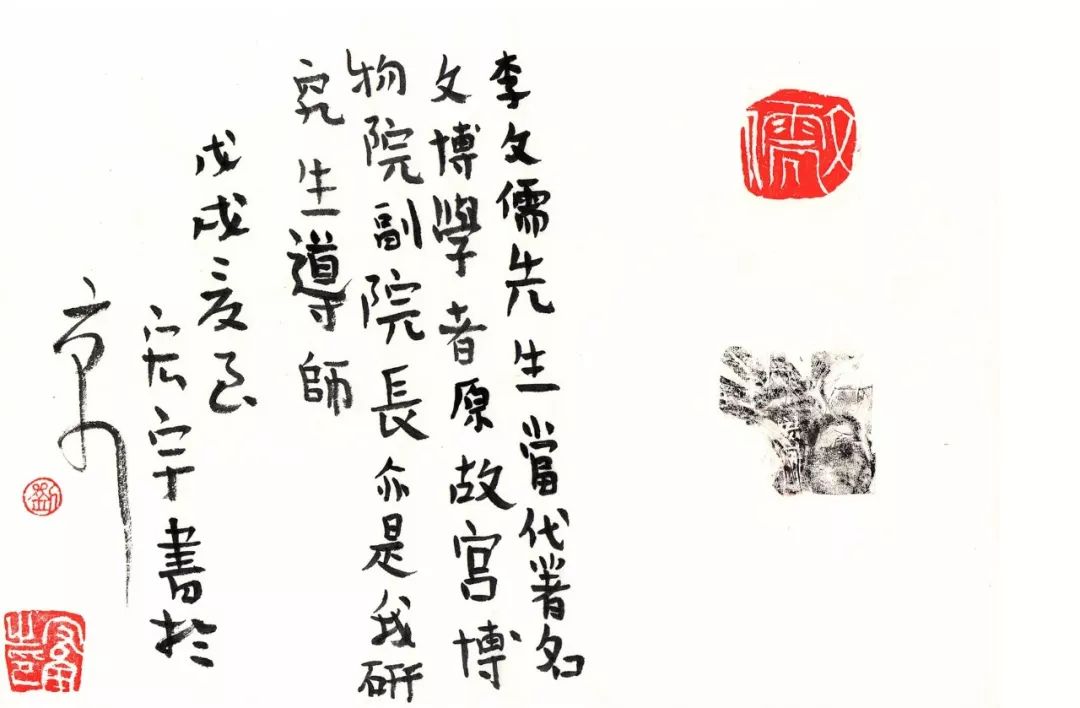 文儒
李文儒先生當代著名
文博學者原故宫博
物院副院長亦是我研
究生導師
戊戌夏
宏宇書於
京
劉
宏宇之印